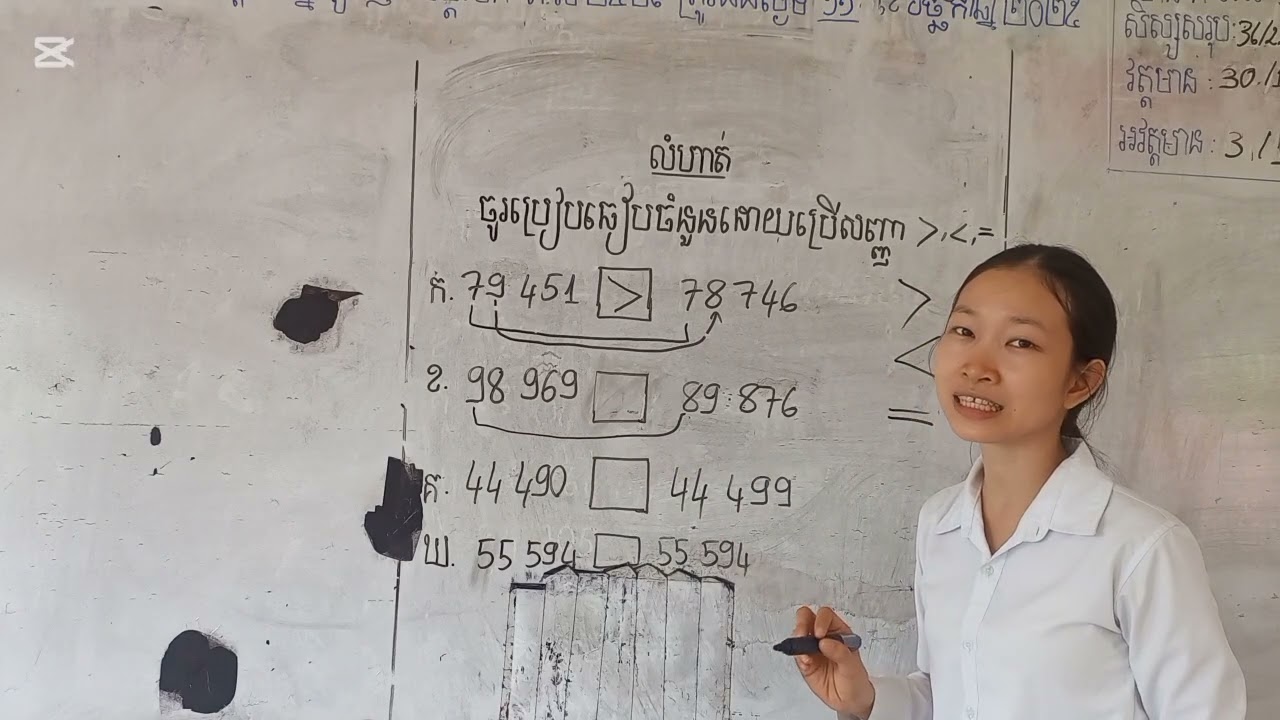 ២០២៥
សិស្សសរុប:36/2
វត្តមាន : 30./1
អវត្តមាន : 3./1
លំហាត់
ចូរប្រៀបធៀបចំនួនដោយប្រើសញ្ញា >,<,=
ក. 79 451 > 78 746
>
<
ខ. 98 969 89 876
=
គ. 44 490 44 499
ឃ. 55 594 55 594